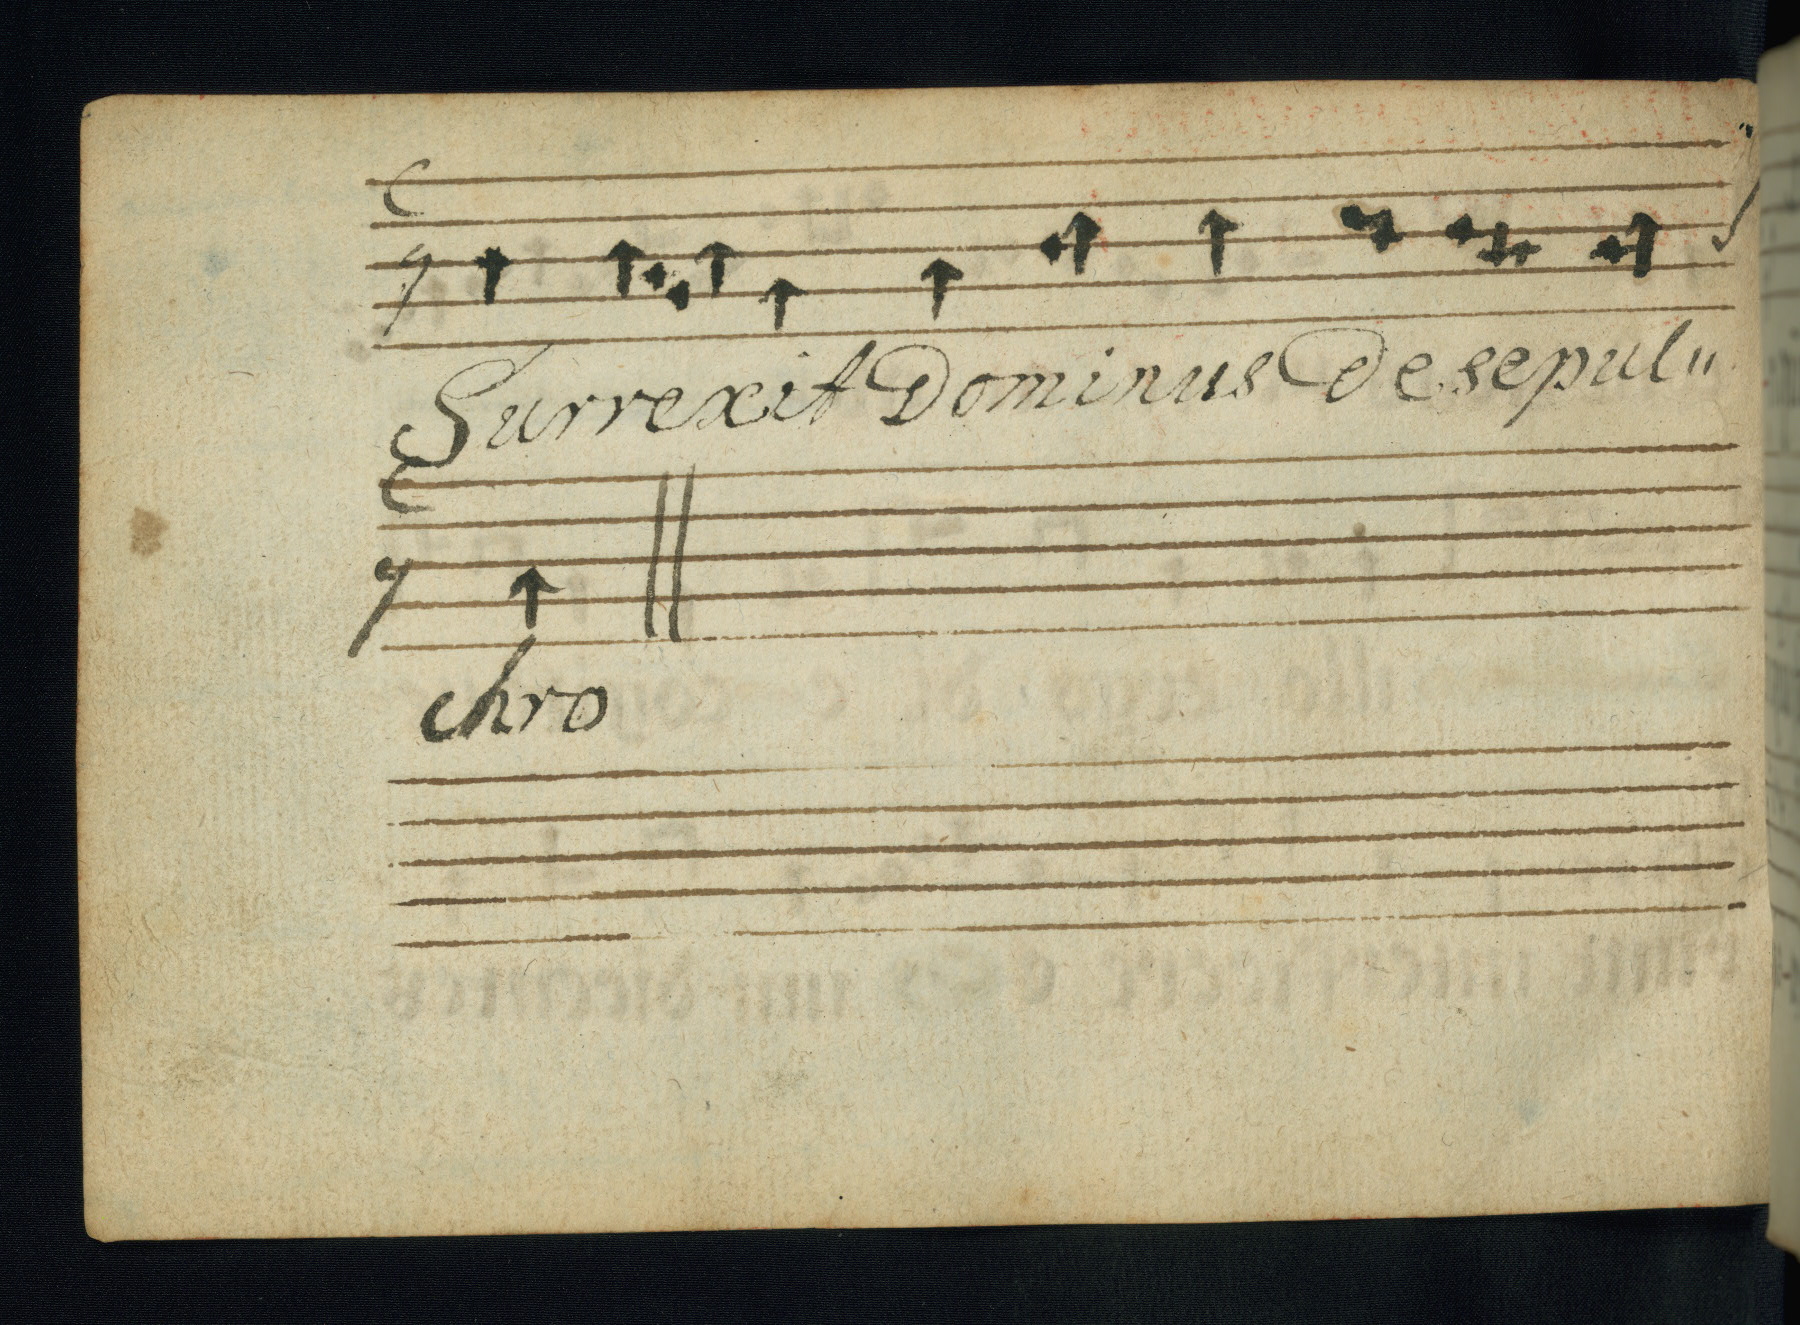 Surrexit Dominus de sepul〃
chro